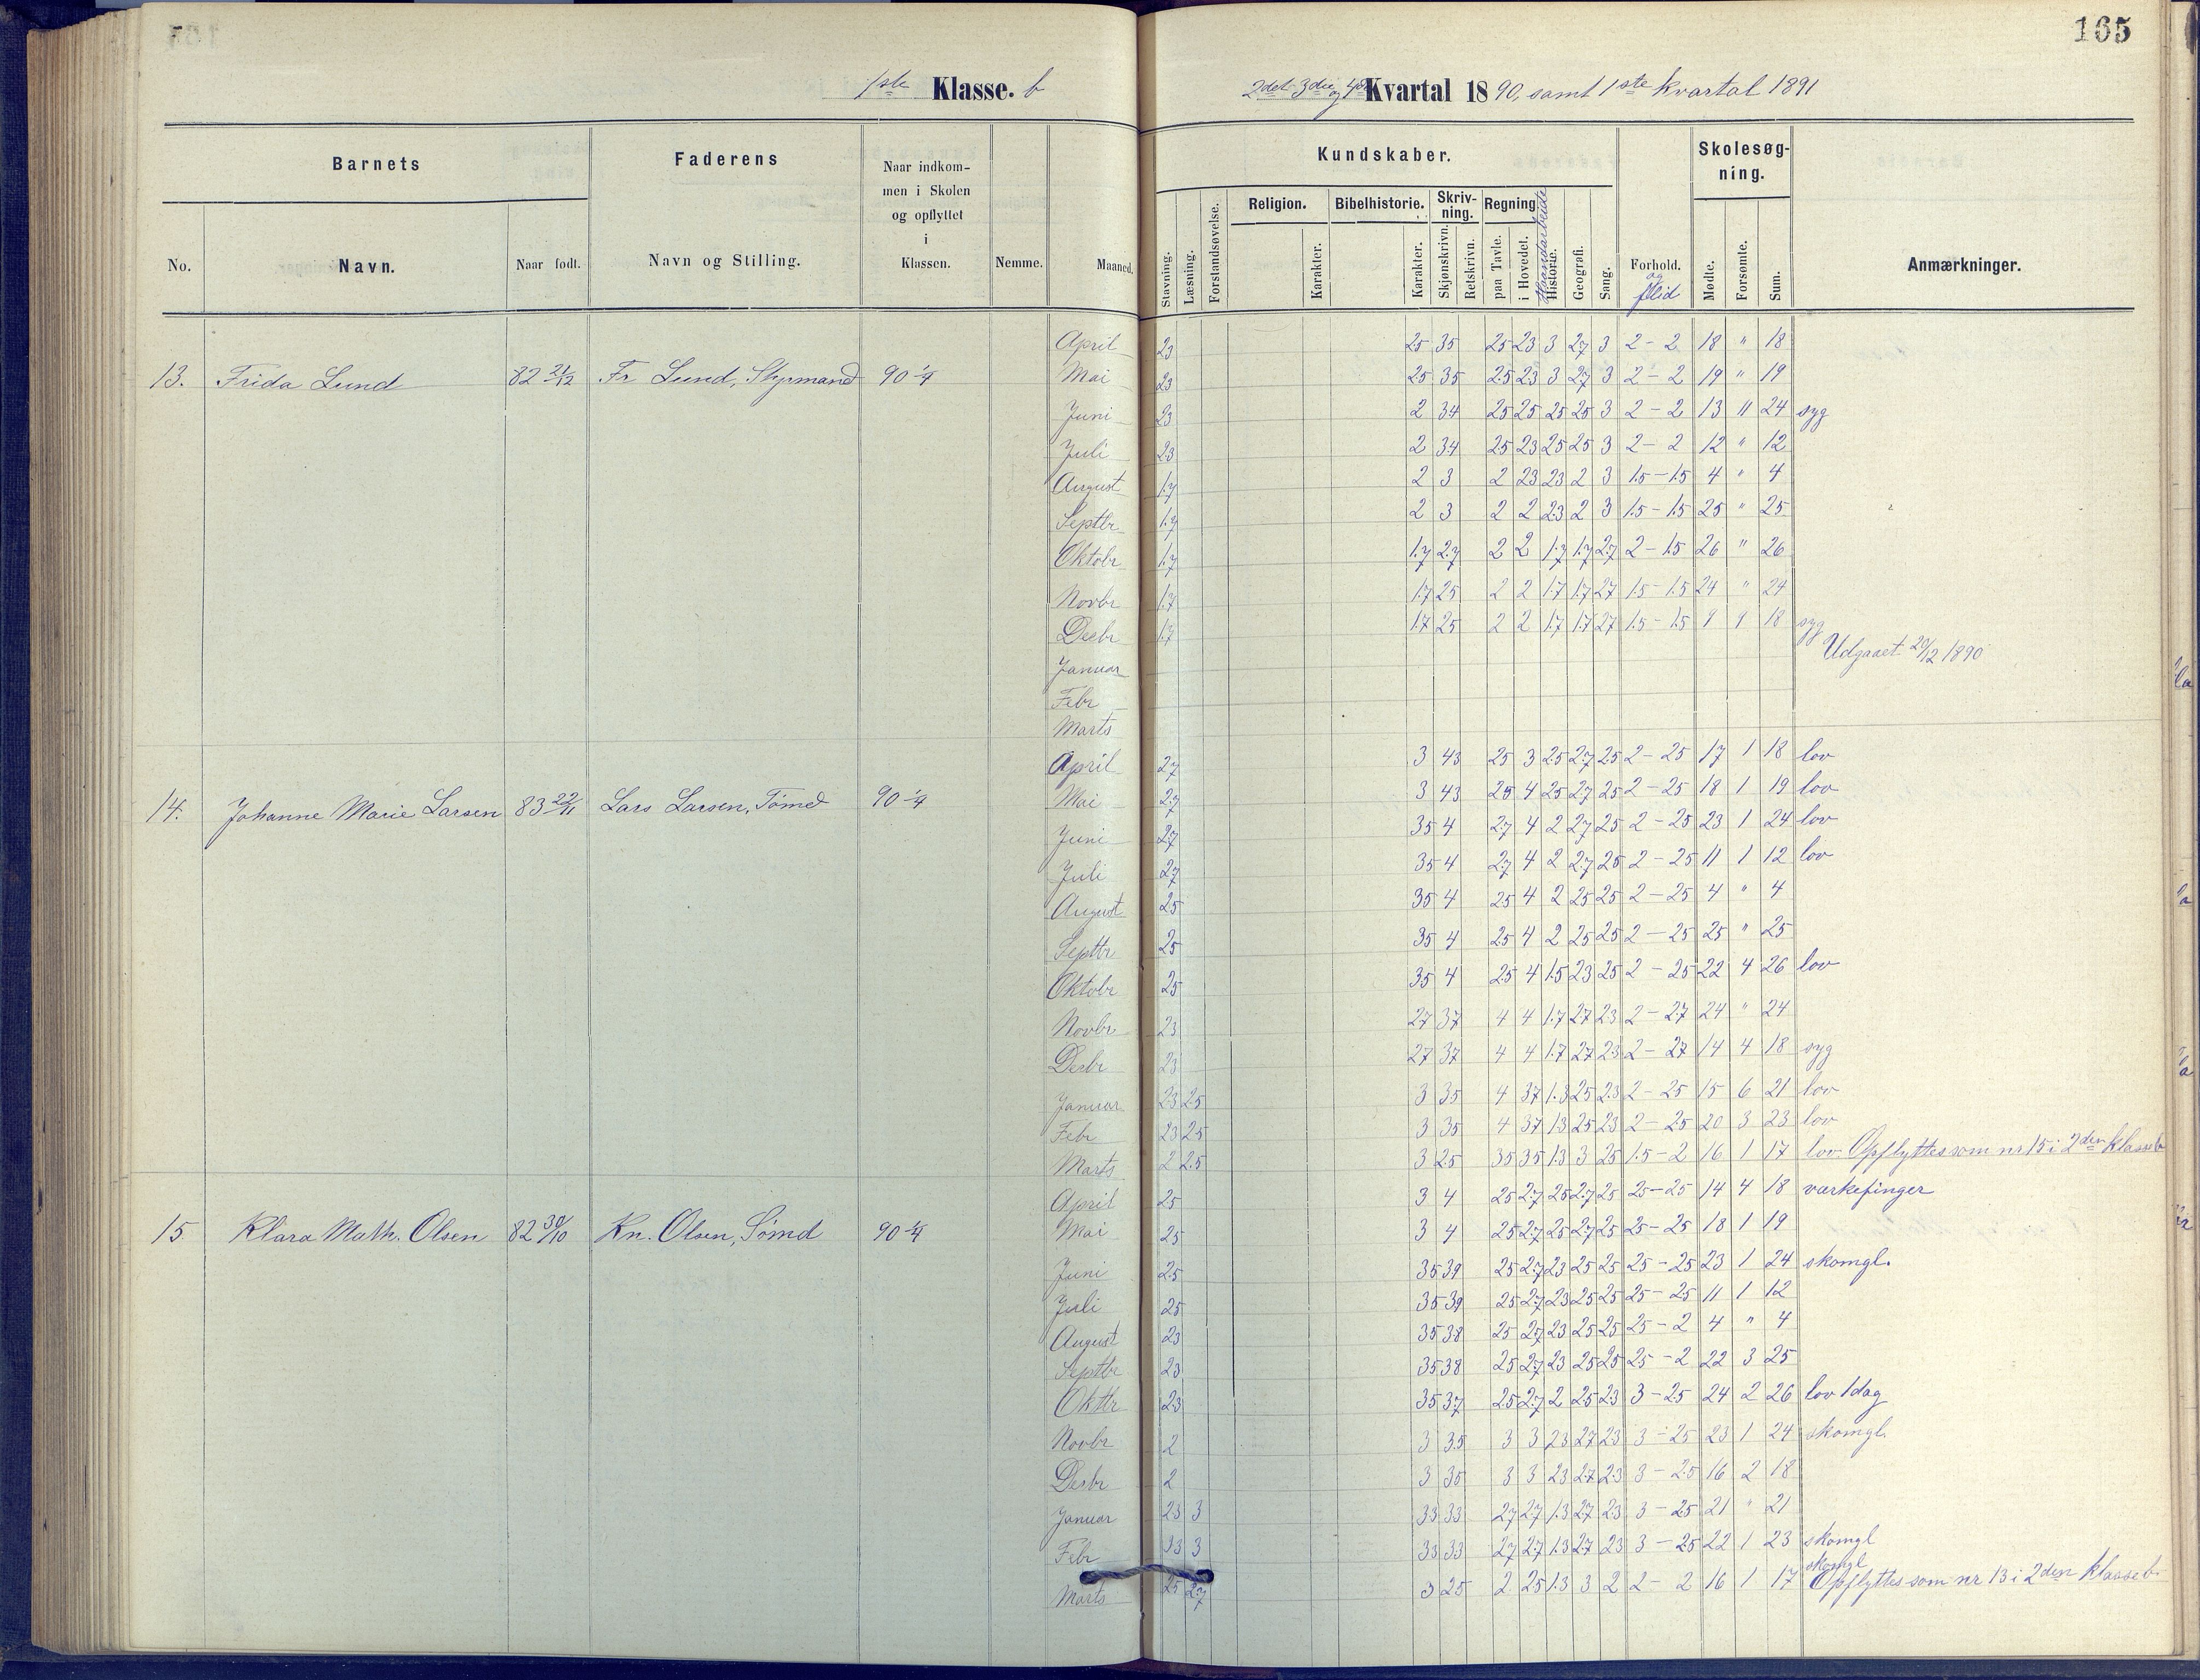 165
1ste Klasse. b
2det 3die og 4de Kvartal 1890, samt 1ste kvartal 1891
Barnets
Faderens
Naar indkom-
men i Skolen
og opflyttet
i
Klassen.
Kundskaber.
Skolesøg-
ning.
Religion. Bibelhistorie. Skriv-
ning. Regning
No. Navn. Naar født. Navn og Stilling. Nemme. Maaned. Stavning. Læsning. Forstandsøvelse. Karakter. Karakter. Skjønskrivn. Retskrivn. paa Tavle. i Hovedet. Haandarbeide Historie. Geografi. Sang. Forhold. og flid Mødte. Forsømte. Sum. Anmærkninger.
April 23 25 35 25 23 3 27 3 2-2 18 " 18
13. Frida Lund 82 21/12 Fr Lund, Stypmand 90 1/4 Mai 23 25 35 25 23 3 27 3 2-2 19 " 19
Juni 23 2 34 25 25 25 25 3 2-2 13 11 24 syg
Juli 23 2 34 25 23 25 25 3 2-2 12 " 12
August 17 2 3 2 23 23 2 3 15-15 4 " 4
Septbr 17 2 3 2 2 23 2 3 15-15 25 " 25
Oktobr 17 17 27 2 2 17 17 27 2-15 26 " 26
Novbr 17 17 25 2 2 17 17 27 15-15 24 " 24
Desbr 17 17 25 2 2 17 17 27 15-15 9 9 18 syg
Udgaaet 20/12 1890
Januar
Febr
Marts
April 27 3 43 25 3 25 27 25 2-25 17 1 18 lov
14. Johanne Marie Larsen 83 22/11 Lars Larsen, Tømd 90 1/4 Mai 27 3 43 25 4 25 27 25 2-25 18 1 19 lov
Juni 27 35 4 27 4 2 27 25 2-25 23 1 24 lov
Juli 27 35 4 27 4 2 27 25 2-25 11 1 12 lov
August 25 35 4 25 4 2 25 25 2-25 4 " 4
Septbr 25 35 4 25 4 2 25 25 2-25 25 " 25
Oktobr 25 35 4 25 4 15 23 25 2-25 22 4 26 lov
Novbr 23 27 37 4 4 17 27 23 2-27 24 " 24
Desbr 23 27 37 4 4 17 27 23 2-27 14 4 18 syg
Januar 23 25 3 35 4 37 13 25 23 2-25 15 6 21 lov
Febr 23 25 3 35 4 37 13 25 23 2-25 20 3 23 lov
Marts 2 25 3 25 35 35 13 3 25 15-2 16 1 17 lov Opflyttes som nr 15 i 2den klasse b
April 25 3 4 25 27 25 27 25 25-25 14 4 18 værkefinger
15. Klara Math. Olsen 82 30/10 Kn. Olsen, Sømd 90 1/4 Mai 25 3 4 25 27 25 27 25 25-25 18 1 19
Juni 25 35 39 25 27 23 25 25 25-25 23 1 24 skomgl.
Juli 25 35 39 25 27 23 25 25 25-25 11 1 12
August 23 35 38 25 27 23 25 25 25-2 4 " 4
Septbr 23 35 38 25 27 23 25 25 25-2 22 3 25
Oktbr 23 35 37 25 27 2 25 23 3-25 24 2 26 lov 1dag
Novbr 2 3 35 3 3 23 27 23 3-25 23 1 24 skomgl.
Desbr 2 3 35 3 3 23 27 23 3-25 16 2 18
Januar 23 3 33 33 27 27 13 27 23 3-25 21 " 21
Febr 33 3 33 33 27 27 13 27 23 3-25 22 1 23 skomgl
skomgl
Marts 25 27 3 25 2 25 13 3 2 2-2 16 1 17 Opflyttes som nr 13 i 2den klasse b.